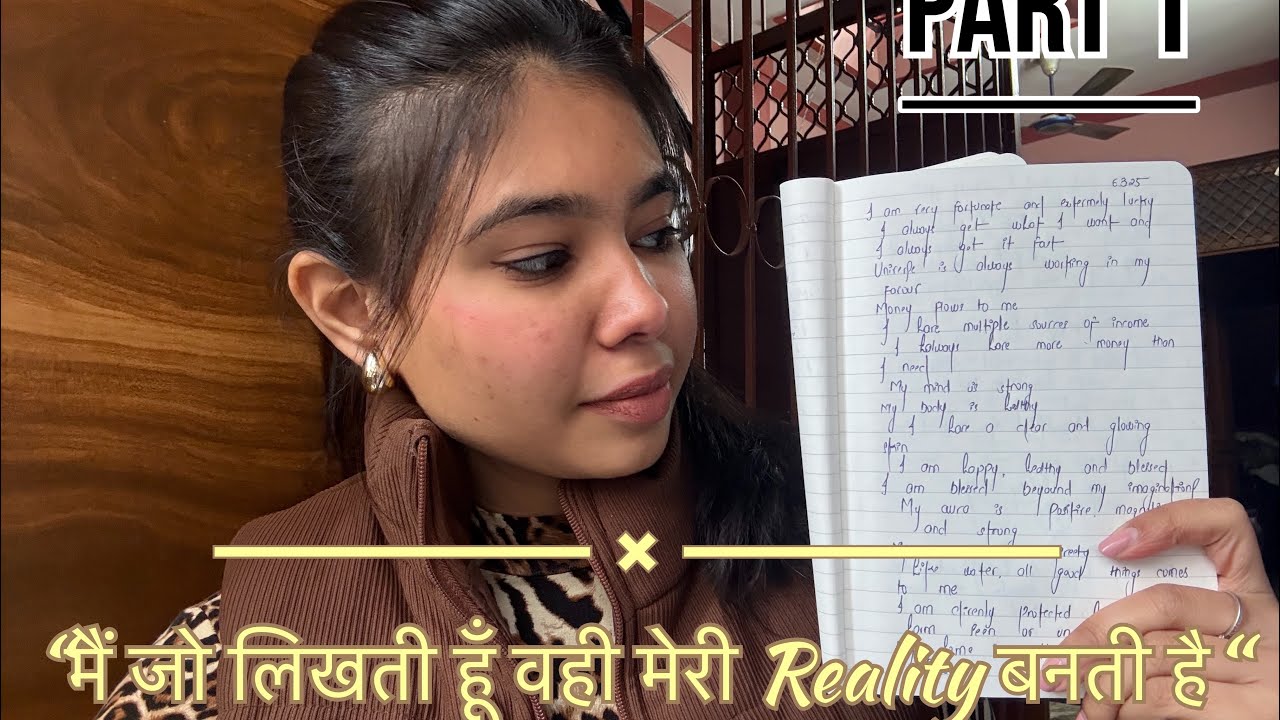 PART 1
I am very fortunate and extremely lucky
I always get what I want and
I always get it fast
Universe is always working in my
favour
Money flows to me
I have multiple sources of income
I always have more money than
I need
My mind is strong
My body is healthy
I have a clear and glowing
skin
I am happy, healthy and blessed
I am blessed beyound my imagination
My aura is positive,
and strong
Like water, all good things comes
to me
I am divenly protected
harm seen or
“मैं जो लिखती हूँ वही मेरी Reality बनती है“